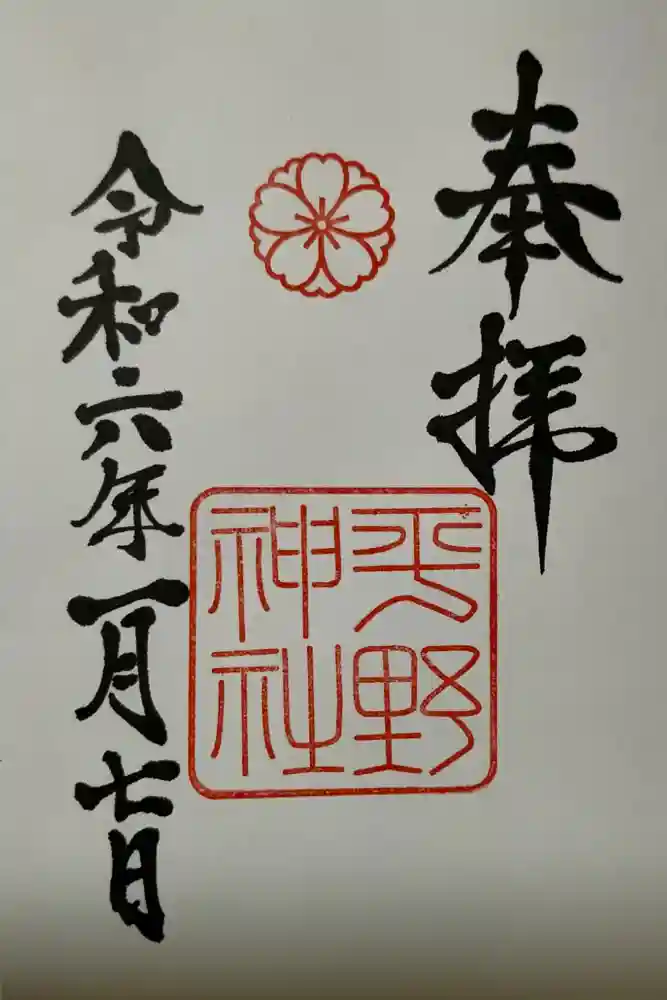 奉拝
平野
神社
令和六年一月七日